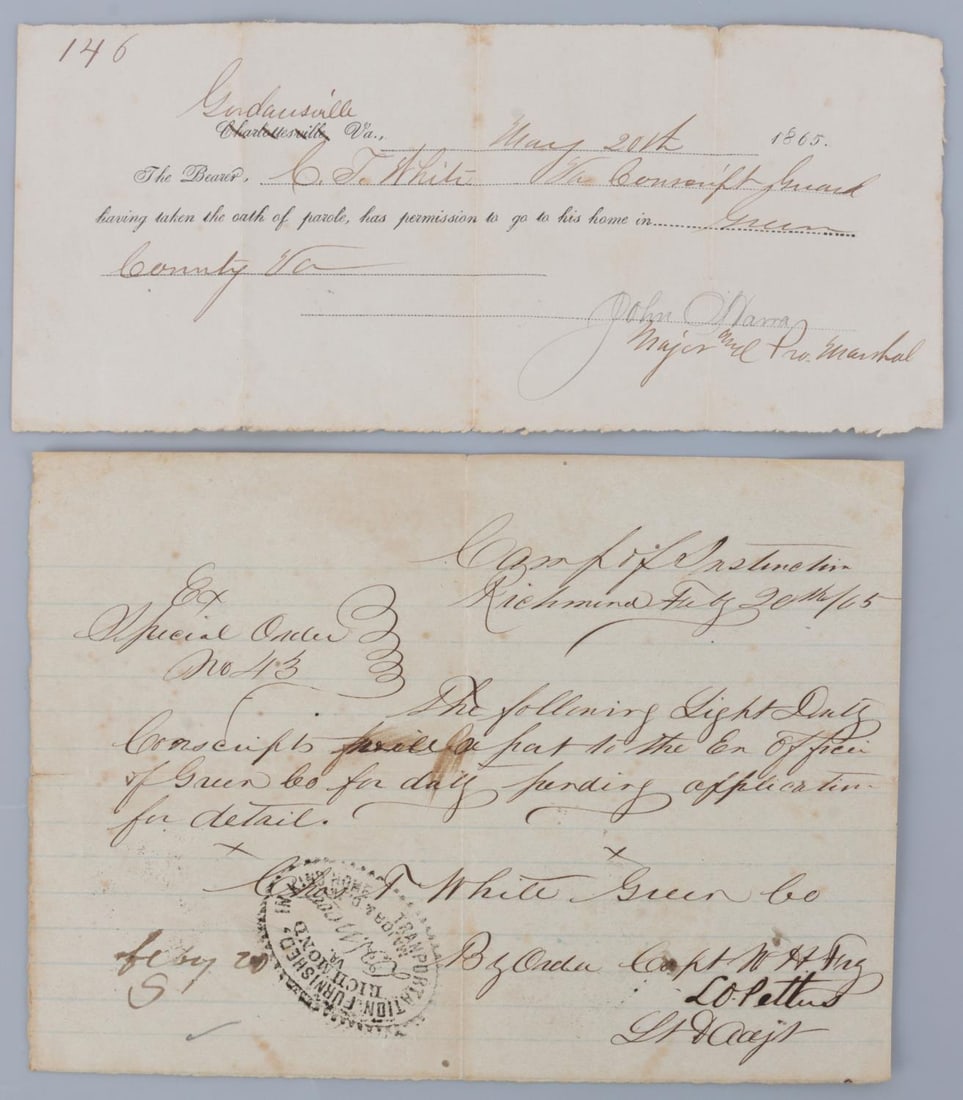 146
Gordansville
Charlottesville Va., May 20th 1865.
The Bearer, C. T. White Va Conscript Guard
having taken the oath of parole, has permission to go to his home in Green
County Va
John
Major and Pro. Marshal
Camp of Instruction
Richmond Feby 20th/65
Ex
Special Order
No 43
The following Light Duty
Conscripts will report to the En Officer
of Green Co for duty pending application
for detail.
x x
T White Green Co
By Order Capt W H Fry
L O. Pettus
Lt & Adjt
feby 20
S
TRANPORTATION FURNISHED,
MAJOR & Q.
RICHMOND
VA.